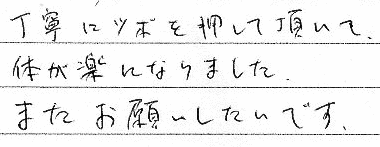 丁寧にツボを押して頂いて、
体が楽になりました。
またお願いしたいです。